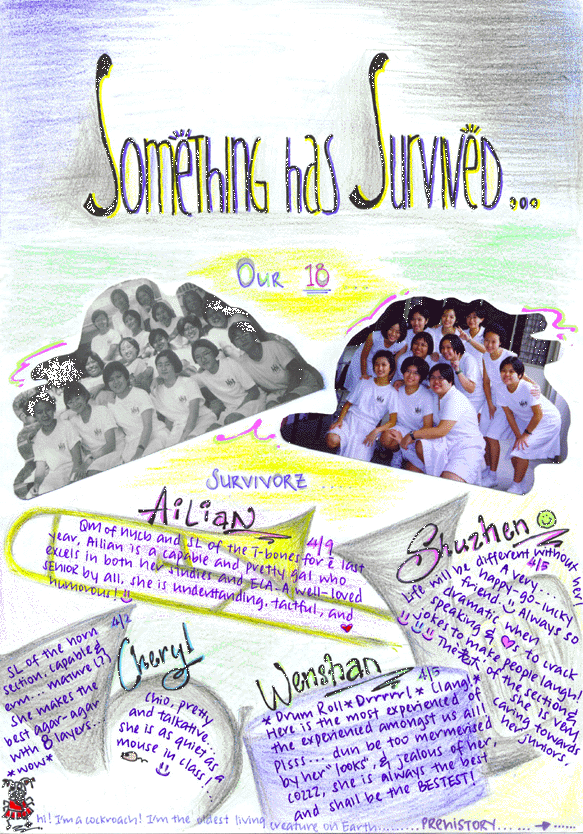 Something has Survived...
Our 18 ...
Survivorz ...
AiLian
4/9
QM of nycb and SL of the T-bones for ē last
year, Ailian is a capable and pretty gal who
excels in both her studies and ECA. A well-loved
senior by all, she is understanding, tactful, and
humorous!
Shuzhen
4/5
Life will be different without her
A very... happy-go-lucky
friend. Always so
dramatic when
speaking & ♥s to crack
jokes to make people laugh!
of the section &
she is very
caring towards
her juniors.
Cheryl
4/2
SL of the horn
section, capable &
erm... mature (?)
She makes the
best agar-agar
with 8 layers...
*wow*
Chio, pretty
and talkative...
she is as quiet as a
mouse in class!
Wenshan
4/5
*Drum Roll* Drrrrrl* Clang!*
Here is the most experienced of
the experienced amongst us all!
Plsss... dun be too mermerised
by her "looks", & jealous of her,
cozz, she is always the best
and shall be the BESTEST!
hi! I'm a cockroach! I'm the oldest living creature on Earth.......... PREHISTORY... ... →